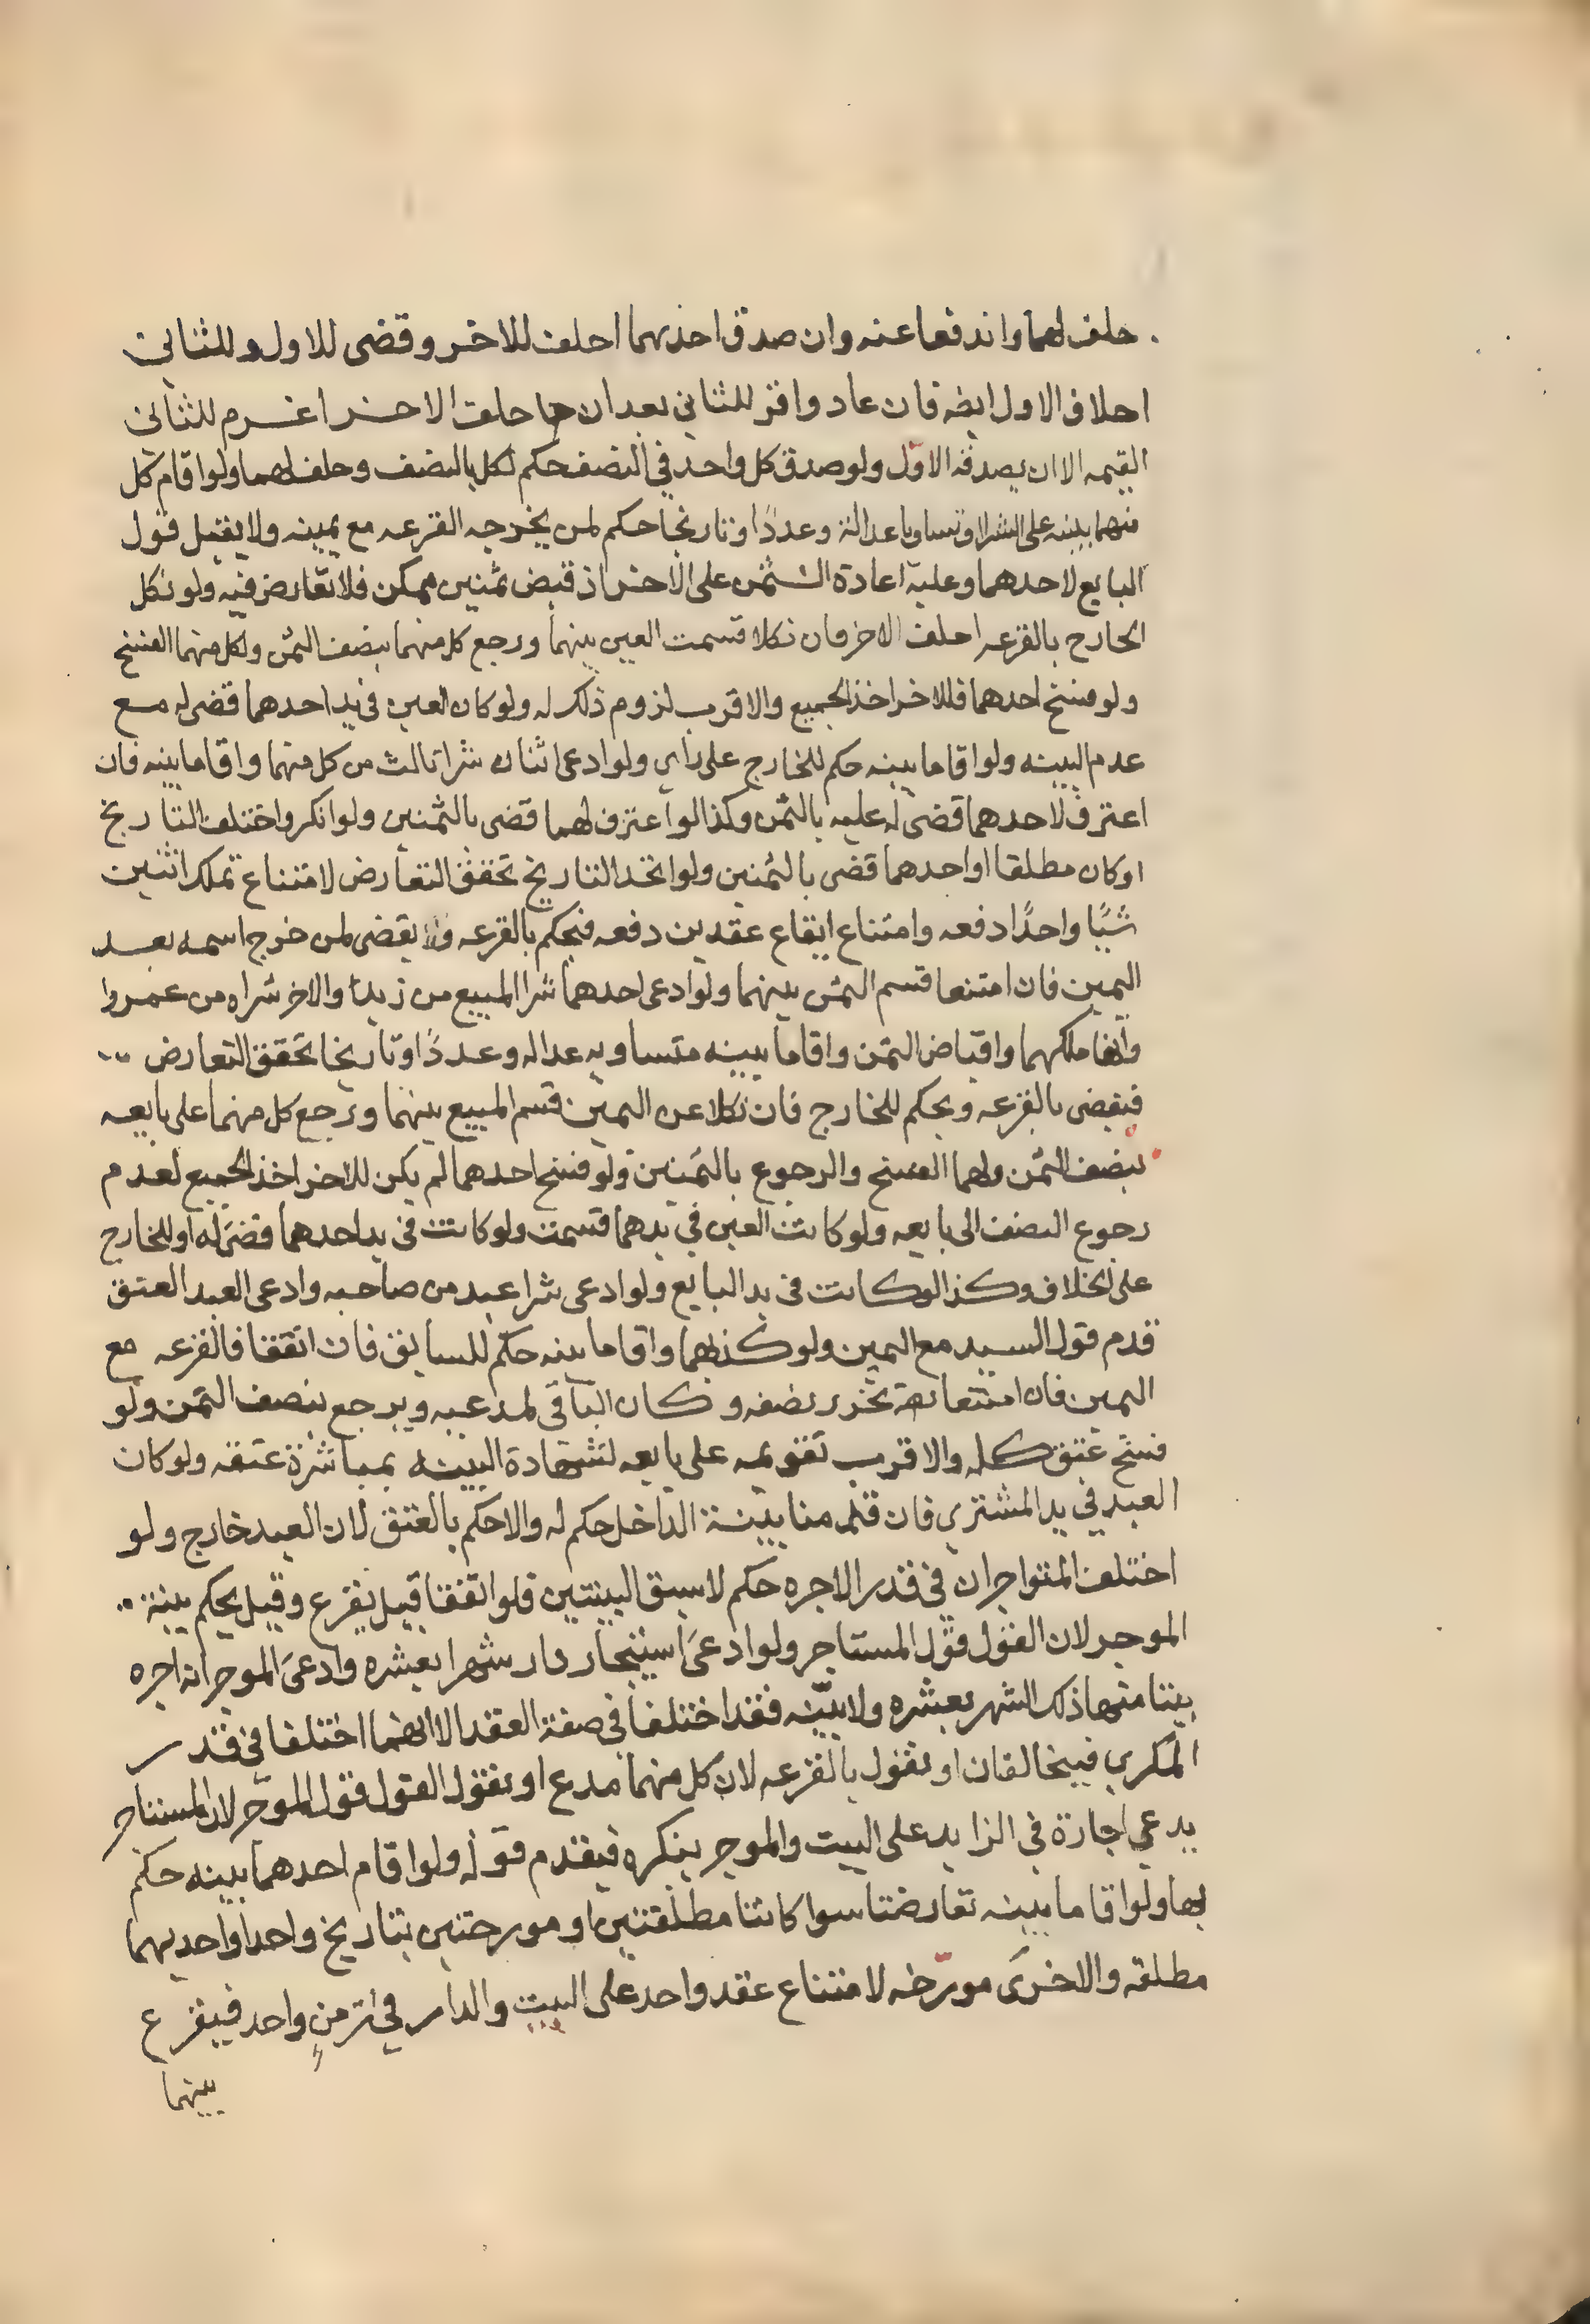 حلف لهما واندفعا عنه وان صدق احدهما احلف للاخر وقضى للاول وللثاني
احلاف الاول ايضه فان عاد واقر للثاني بعد ان حلف الاخر اغرم للثاني
القيمه الا ان يصدقه الاوّل ولو صدق كل واحد في النصف حكم لكل بالنصف وحلف لهما ولو اقام كل
منهما بينه على الشرا وتساويا عدالة وعددًا وتاريخا حكم لمن يخرجه القرعه مع يمينه ولا يقبل قول
البايع لاحدهما وعليه اعادة الثمن على الاخر اذ قبض ثمنين ممكن فلا تعارض فيه ولو نكل
الخارج بالقرعه احلف الاخر فان نكلا قسمت العين بينهما ورجع كل منهما بنصف الثمن ولكل منهما الفسخ
ولو فسخ احدهما فللاخر اخذ الجميع والاقرب لزوم ذلك له ولو كان العين في يد احدهما قضى له مع
عدم البينه ولو اقاما بينه حكم للخارج على راي ولو ادعى اثنان شرا ثالث من كل منهما واقاما بينه فان
اعترف لاحدهما قضى له عليه بالثمن وكذا لو اعترف لهما قضى بالثمنين ولو انكر واختلف التاريخ
او كان مطلقا او احدهما قضى بالثمنين ولو اتحد التاريخ تحقق التعارض لامتناع تملك اثنين
شيًا واحدًا دفعه وامتناع ايقاع عقدين دفعه فيحكم بالقرعه ولا يقضى لمن خرج اسمه بعد
اليمين فان امتنعا قسم الثمن بينهما ولو ادعى احدهما شرا المبيع من زيد والاخر شراه من عمروا
وانهما ملكهما واقباض الثمن واقاما بينه متساويه عداله وعددًا وتاريخا تحقق التعارض
فيقضى بالقرعه ويحكم للخارج فان نكلا عن اليمين قسم المبيع بينهما ورجع كل منهما على بايعه
بنصف الثمن ولهما الفسخ والرجوع بالثمنين ولو فسخ احدهما لم يكن للاخر اخذ الجميع لعدم
رجوع النصف الى بايعه ولو كانت العين في يدهما قسمت ولو كانت في يد احدهما قضى له او للخارج
على الخلاف وكذا لو كانت في يد البايع ولو ادعى شرا عبد من صاحبه وادعى العبد العتق
قدم قول السيد مع اليمين ولو كذبهما واقاما بينه حكم للسابق فان اتفقا فالقرعه مع
اليمين فان امتنعا تحرر نصفه وكان الباقي لمدعيه ويرجع بنصف الثمن ولو
فسخ عتق كله والاقرب تقويمه على بايعه لشهادة البينه بمباشرة عتقه ولو كان
العبد في يد المشتري فان قدمنا بينة الداخل حكم له والا حكم بالعتق لان العبد خارج ولو
اختلف المتواجران في قدر الاجره حكم لاسبق البينتين فلو اتفقا قيل يقرع وقيل يحكم ببينة
الموجر لان القول قول المستاجر ولو ادعى استيجار دار شهرا بعشره وادعى الموجر انه اجره
بيتا منها ذلك الشهر بعشره ولا بيّنه فقد اختلفا في صفة العقد الا انهما اختلفا في قدر
المكري فيتحالفان او نقول بالقرعه لان كل منهما مدع او نقول القول قول الموجر لان المستاجر
يدعي اجارة في الزايد على البيت والموجر ينكره فيقدم قوله ولو اقام احدهما بينه حكم
بها ولو اقاما بينه تعارضتا سوا كانتا مطلقتين او مورختين بتاريخ واحد او احديهما
مطلقه والاخرى مورّخه لامتناع عقد واحد على البيت والدار في زمنٍ واحد فيقرع
بينهما